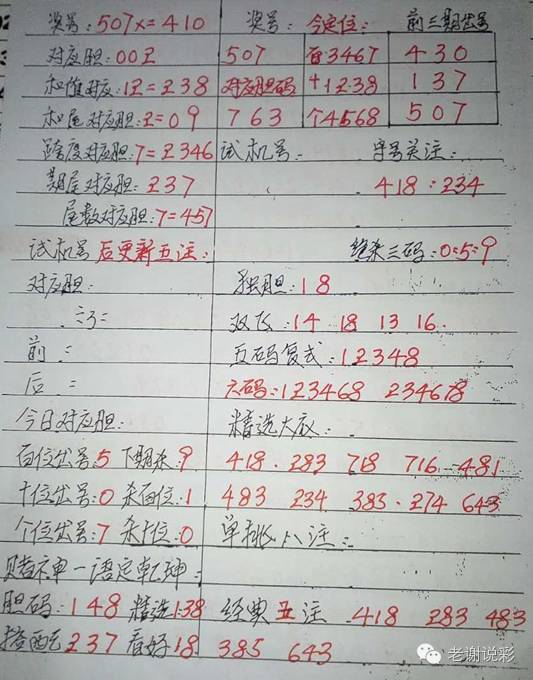 奖号:507x=410 奖号: 今定位: 前三期出号
对应胆:002 507 百3467 430
和值对应:12=238 对应胆码 十1238 137
和尾对应胆:2=09 763 个4568 507
跨度对应胆:7=2346 试机号: 守号关注:
期尾对应胆:237 418:234
尾数对应胆:7=457
试机号后更新五注: 绝杀三码:0:5:9
对应胆: 独胆:18
双飞:14 18 13 16.
前:= 五码复式:12348
后:= 六码:123468 234678
今日对应胆: 精选大底:
百位出号:5 下期杀:9 418. 283 718 716 481
十位出号:0 杀百位:1 483 234 383. 274 643
个位出号:7 杀十位:0 单挑八注:
赌神一语定乾坤:
胆码:148 精选138 经典五注 418 283 483
搭配237 看好18 385 643
老谢说彩